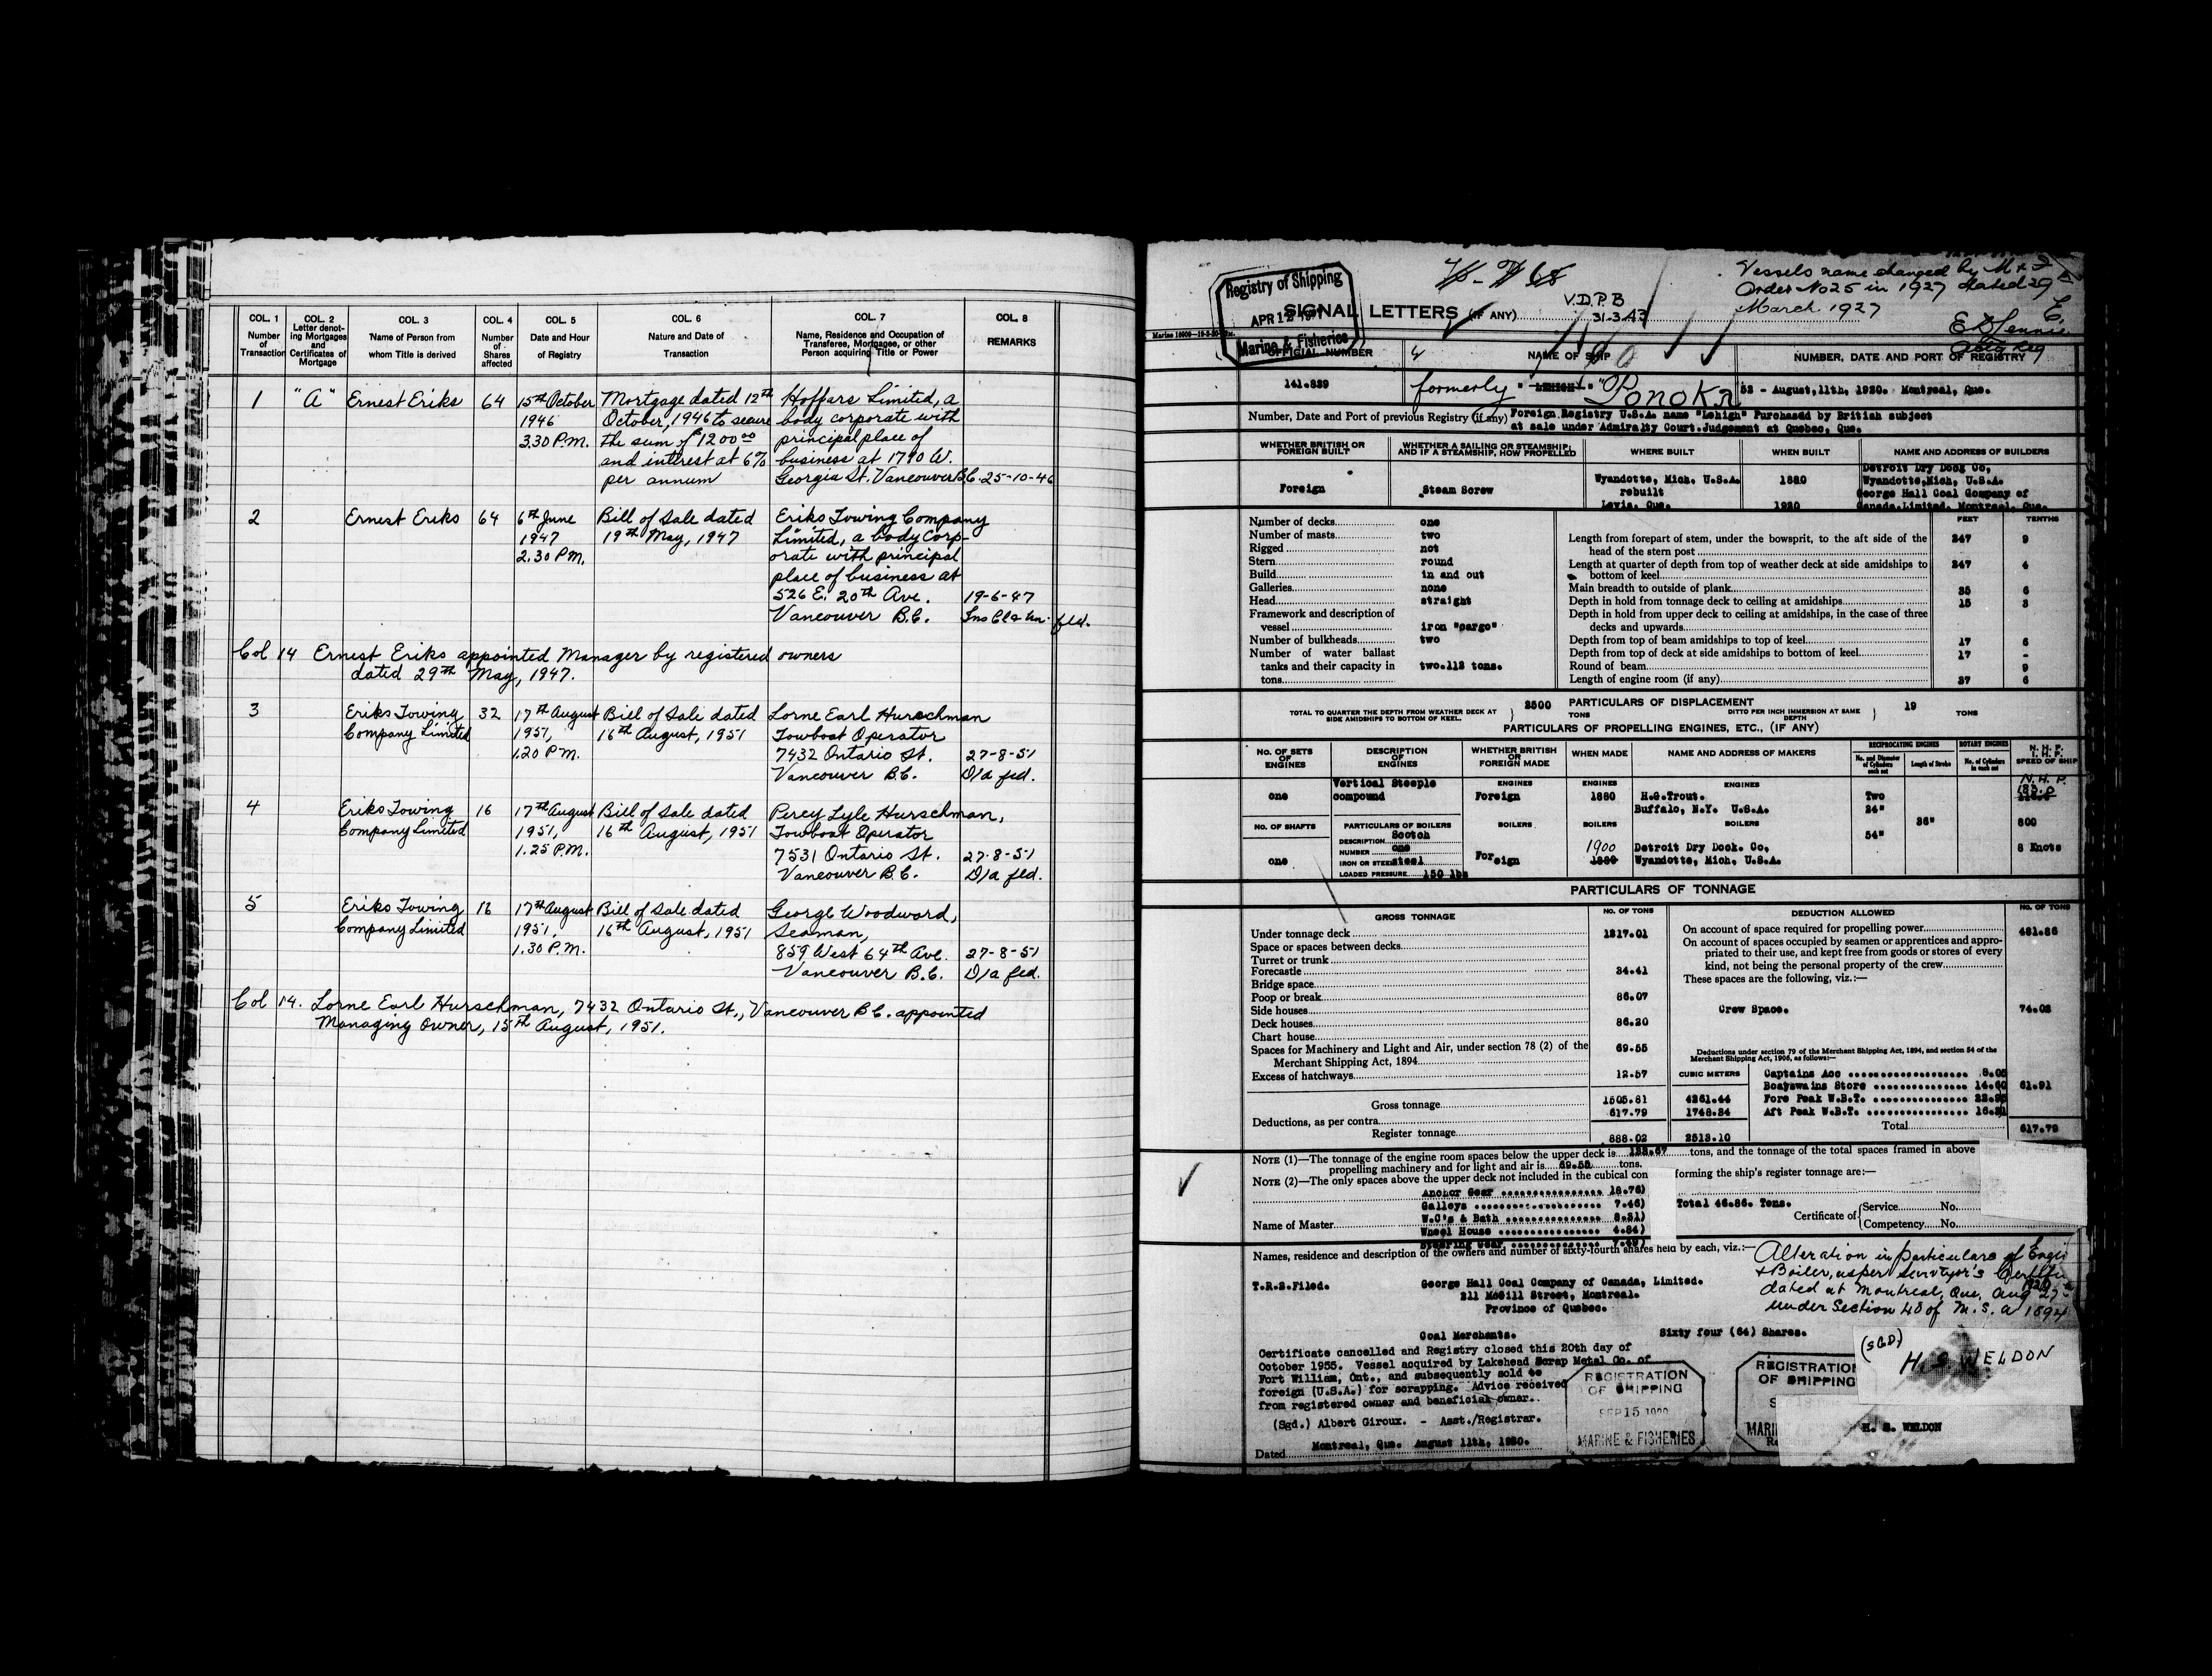 COL. 1 COL. 2 COL. 3 COL. 4 COL. 5 COL. 6 COL. 7 COL. 8
Number of Transaction
Letter denoting Mortgages and Certificates of Mortgage
Name of Person from whom Title is derived
Number of Shares affected
Date and Hour of Registry
Nature and Date of Transaction
Name, Residence and Occupation of Transferee, Mortgagee, or other Person acquiring Title or Power
REMARKS
1 "A" Ernest Eriks 64 15th October Mortgage dated 12th Hoffars Limited, a
1946 October, 1946 to secure body corporate with
3.30 P.M. the sum of $1200.00 principal place of
and interest at 6% business at 1790 W.
per annum Georgia St. Vancouver B.C. 25-10-46
2 Ernest Eriks 64 6th June Bill of Sale dated Eriks Towing Company
1947 19th May, 1947 Limited, a body corp-
2.30 P.M. orate with principal
place of business at
526 E. 20th Ave. 19-6-47
Vancouver B.C. fld.
Col 14 Ernest Eriks appointed Manager by registered owners
dated 29th May, 1947.
3 Eriks Towing 32 17th August Bill of Sale dated Lorne Earl Hurschman
Company Limited 1951, 16th August, 1951 Towboat Operator
1.20 P.M. 7432 Ontario St. 27-8-51
Vancouver B.C. D/a fld.
4 Eriks Towing 16 17th August Bill of Sale dated Percy Lyle Hurschman,
Company Limited 1951, 16th August, 1951 Towboat Operator
1.25 P.M. 7531 Ontario St. 27-8-51
Vancouver B.C. D/a fld.
5 Eriks Towing 16 17th August Bill of Sale dated George Woodward,
Company Limited 1951, 16th August, 1951 Seaman,
1.30 P.M. 859 West 64th Ave. 27-8-51
Vancouver B.C. D/a fld.
Col 14. Lorne Earl Hurschman, 7432 Ontario St., Vancouver B.C. appointed
Managing Owner, 15th August, 1951.
Registry of Shipping
APR 12
Marine & Fisheries
Vessels name changed by M & F
Order No 25 in 1927 dated 29th
March 1927
V.D.P.B
31.3.43
SIGNAL LETTERS (IF ANY)
OFFICIAL NUMBER NAME OF SHIP NUMBER, DATE AND PORT OF REGISTRY
141.839 formerly "LEHIGH" "Ponoka 52 - August,11th, 1920. Montreal, Que.
Number, Date and Port of previous Registry (if any) Foreign Registry U.S.A. name "Lehigh" Purchased by British subject
at sale under Admiralty Court.Judgement at Quebec, Que.
WHETHER BRITISH OR FOREIGN BUILT
WHETHER A SAILING OR STEAMSHIP; AND IF A STEAMSHIP, HOW PROPELLED
WHERE BUILT WHEN BUILT NAME AND ADDRESS OF BUILDERS
Foreign Steam Screw
Wyandotte, Mich. U.S.A. 1880 Detroit Dry Dock Co, Wyandotte,Mich, U.S.A.
rebuilt Levis, Que. 1920 George Hall Coal Company of Canada.Limited. Montreal. Que.
FEET TENTHS
Number of decks one
Number of masts two
Rigged not
Stern round
Build in and out
Galleries none
Head straight
Framework and description of vessel iron "cargo"
Number of bulkheads two
Number of water ballast tanks and their capacity in tons two.112 tons.
Length from forepart of stem, under the bowsprit, to the aft side of the head of the stern post 247 9
Length at quarter of depth from top of weather deck at side amidships to bottom of keel 247 4
Main breadth to outside of plank 35 6
Depth in hold from tonnage deck to ceiling at amidships 15 3
Depth in hold from upper deck to ceiling at amidships, in the case of three decks and upwards
Depth from top of beam amidships to top of keel 17 6
Depth from top of deck at side amidships to bottom of keel 17 -
Round of beam 9
Length of engine room (if any) 37 6
PARTICULARS OF DISPLACEMENT
TOTAL TO QUARTER THE DEPTH FROM WEATHER DECK AT SIDE AMIDSHIPS TO BOTTOM OF KEEL. 2500 TONS
DITTO PER INCH IMMERSION AT SAME DEPTH 19 TONS
PARTICULARS OF PROPELLING ENGINES, ETC., (IF ANY)
NO. OF SETS OF ENGINES
DESCRIPTION OF ENGINES
WHETHER BRITISH OR FOREIGN MADE
WHEN MADE
NAME AND ADDRESS OF MAKERS
RECIPROCATING ENGINES
No. and Diameter of Cylinders each set
Length of Stroke
ROTARY ENGINES
No. of Cylinders in each set
N. H. P. I. H. P. SPEED OF SHIP
ENGINES ENGINES ENGINES
one Vertical Steeple compound Foreign 1880 H.G.Trout. Buffalo, N.Y. U.S.A. Two 24" 54" 36"
N.H.P.
600
8 Knots
NO. OF SHAFTS PARTICULARS OF BOILERS BOILERS BOILERS BOILERS
one
DESCRIPTION Scotch
NUMBER one
IRON OR STEEL steel
LOADED PRESSURE 150 lbs
Foreign 1900 1880 Detroit Dry Dock. Co, Wyandotte, Mich, U.S.A.
PARTICULARS OF TONNAGE
GROSS TONNAGE NO. OF TONS DEDUCTION ALLOWED NO. OF TONS
Under tonnage deck 1217.01
Space or spaces between decks
Turret or trunk
Forecastle 34.41
Bridge space
Poop or break 86.07
Side houses
Deck houses 86.20
Chart house
Spaces for Machinery and Light and Air, under section 78 (2) of the Merchant Shipping Act, 1894 69.55
Excess of hatchways 12.57
Gross tonnage 1505.81 4261.44
Deductions, as per contra 617.79 1748.34
Register tonnage 888.02 2513.10
CUBIC METERS
On account of space required for propelling power 481.86
On account of spaces occupied by seamen or apprentices and appropriated to their use, and kept free from goods or stores of every kind, not being the personal property of the crew
These spaces are the following, viz.:—
Crew Space. 74.02
Deductions under section 79 of the Merchant Shipping Act, 1894, and section 54 of the Merchant Shipping Act, 1906, as follows:—
Captains Acc 8.05
Boatswains Store 14.60 61.91
Fore Peak W.B.T. 22.95
Aft Peak W.B.T. 16.31
Total 617.79
NOTE (1)—The tonnage of the engine room spaces below the upper deck is 123.67 tons, and the tonnage of the total spaces framed in above
propelling machinery and for light and air is 69.55 tons.
NOTE (2)—The only spaces above the upper deck not included in the cubical con forming the ship's register tonnage are:—
Anchor Gear 18.76)
Galleys 7.46)
W.C's & Bath 8.31)
Wheel House 4.84)
Steering Gear 7.49)
Total 46.86. Tons.
Name of Master
Certificate of Service No.
Competency No.
Names, residence and description of the owners and number of sixty-fourth shares held by each, viz.:—
Alteration in particulars of Engi
& Boiler, as per surveyor's Certific
dated at Montreal, Que, Aug 27
under Section 48 of M.S.A 1894
T.R.S.Filed. George Hall Coal Company of Canada, Limited.
211 McGill Street, Montreal.
Province of Quebec.
Coal Merchants. Sixty four (64) Shares.
Certificate cancelled and Registry closed this 20th day of
October 1955. Vessel acquired by Lakehead Scrap Metal Co. of
Fort William, Ont., and subsequently sold to
foreign (U.S.A.) for scrapping. Advice received
from registered owner and beneficial owner.
(Sgd.) Albert Giroux. - Asst./Registrar.
REGISTRATION OF SHIPPING
SEP 15 1920
MARINE & FISHERIES
REGISTRATION OF SHIPPING
(SGD.)
H. S. WELDON
H. S. WELDON
Dated Montreal, Que. August 11th, 1920.